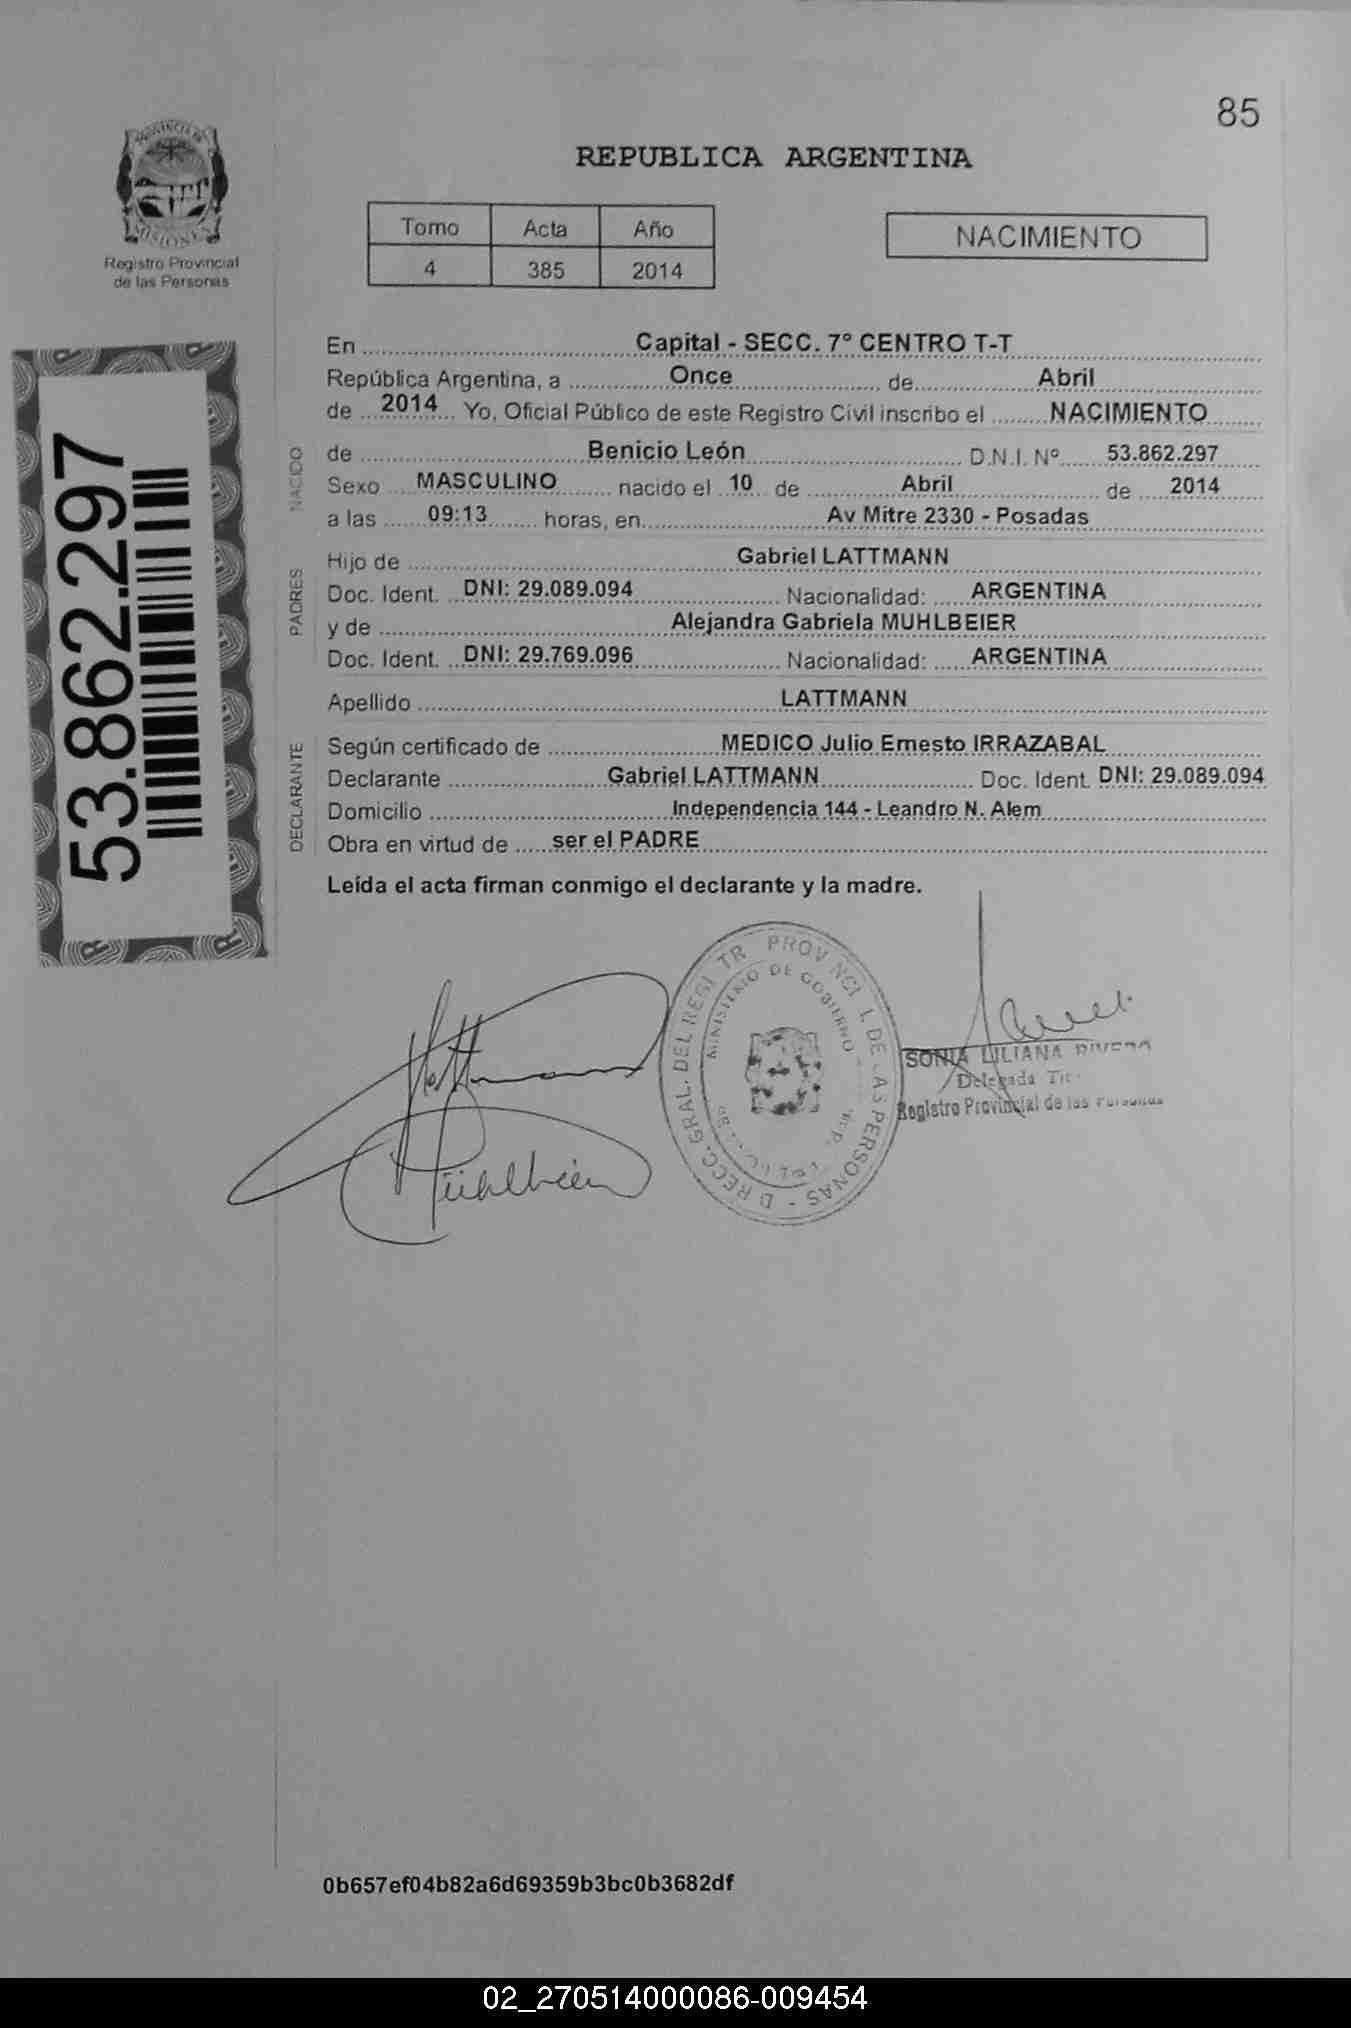 85
PROVINCIA DE
MISIONES
Registro Provincial
de las Personas
REPUBLICA ARGENTINA
Tomo Acta Año
4 385 2014
NACIMIENTO
53.862.297
En Capital - SECC. 7º CENTRO T-T
República Argentina, a Once de Abril
de 2014 Yo, Oficial Público de este Registro Civil inscribo el NACIMIENTO
NACIDO
de Benicio León D.N.I. Nº 53.862.297
Sexo MASCULINO nacido el 10 de Abril de 2014
a las 09:13 horas, en Av Mitre 2330 - Posadas
PADRES
Hijo de Gabriel LATTMANN
Doc. Ident. DNI: 29.089.094 Nacionalidad: ARGENTINA
y de Alejandra Gabriela MUHLBEIER
Doc. Ident. DNI: 29.769.096 Nacionalidad: ARGENTINA
Apellido LATTMANN
DECLARANTE
Según certificado de MEDICO Julio Ernesto IRRAZABAL
Declarante Gabriel LATTMANN Doc. Ident. DNI: 29.089.094
Domicilio Independencia 144 - Leandro N. Alem
Obra en virtud de ser el PADRE
Leída el acta firman conmigo el declarante y la madre.
MINISTERIO DE GOBIERNO
SONIA LILIANA RIVERO
Delegada
Registro Provincial de las Personas
0b657ef04b82a6d69359b3bc0b3682df
02_270514000086-009454